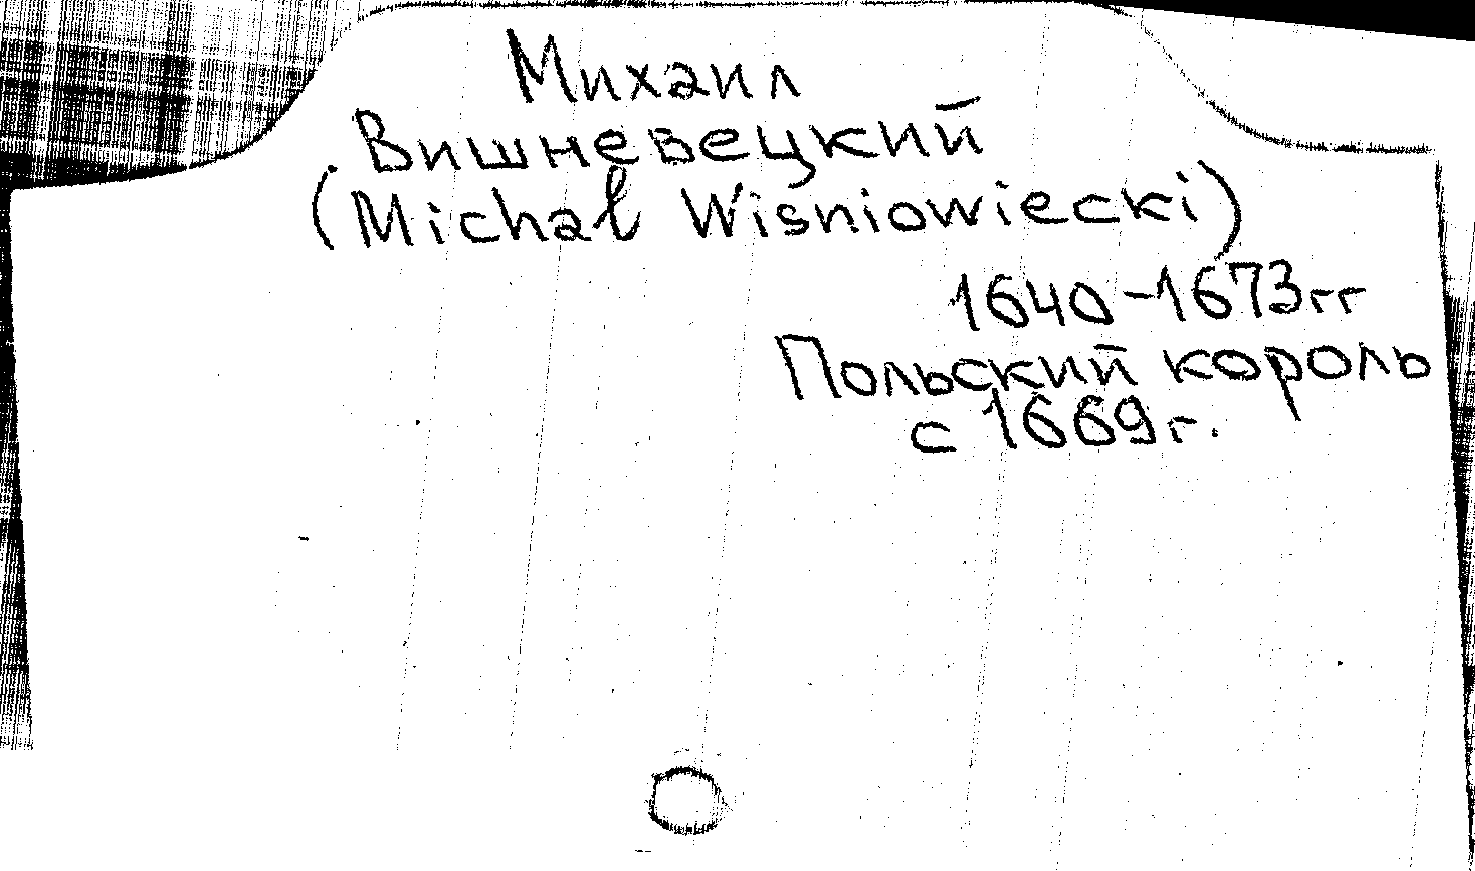 Михаил
Вишневецкий
(Michał Wiśniowiecki)
1640-1673гг
Польский король
с 1669г.